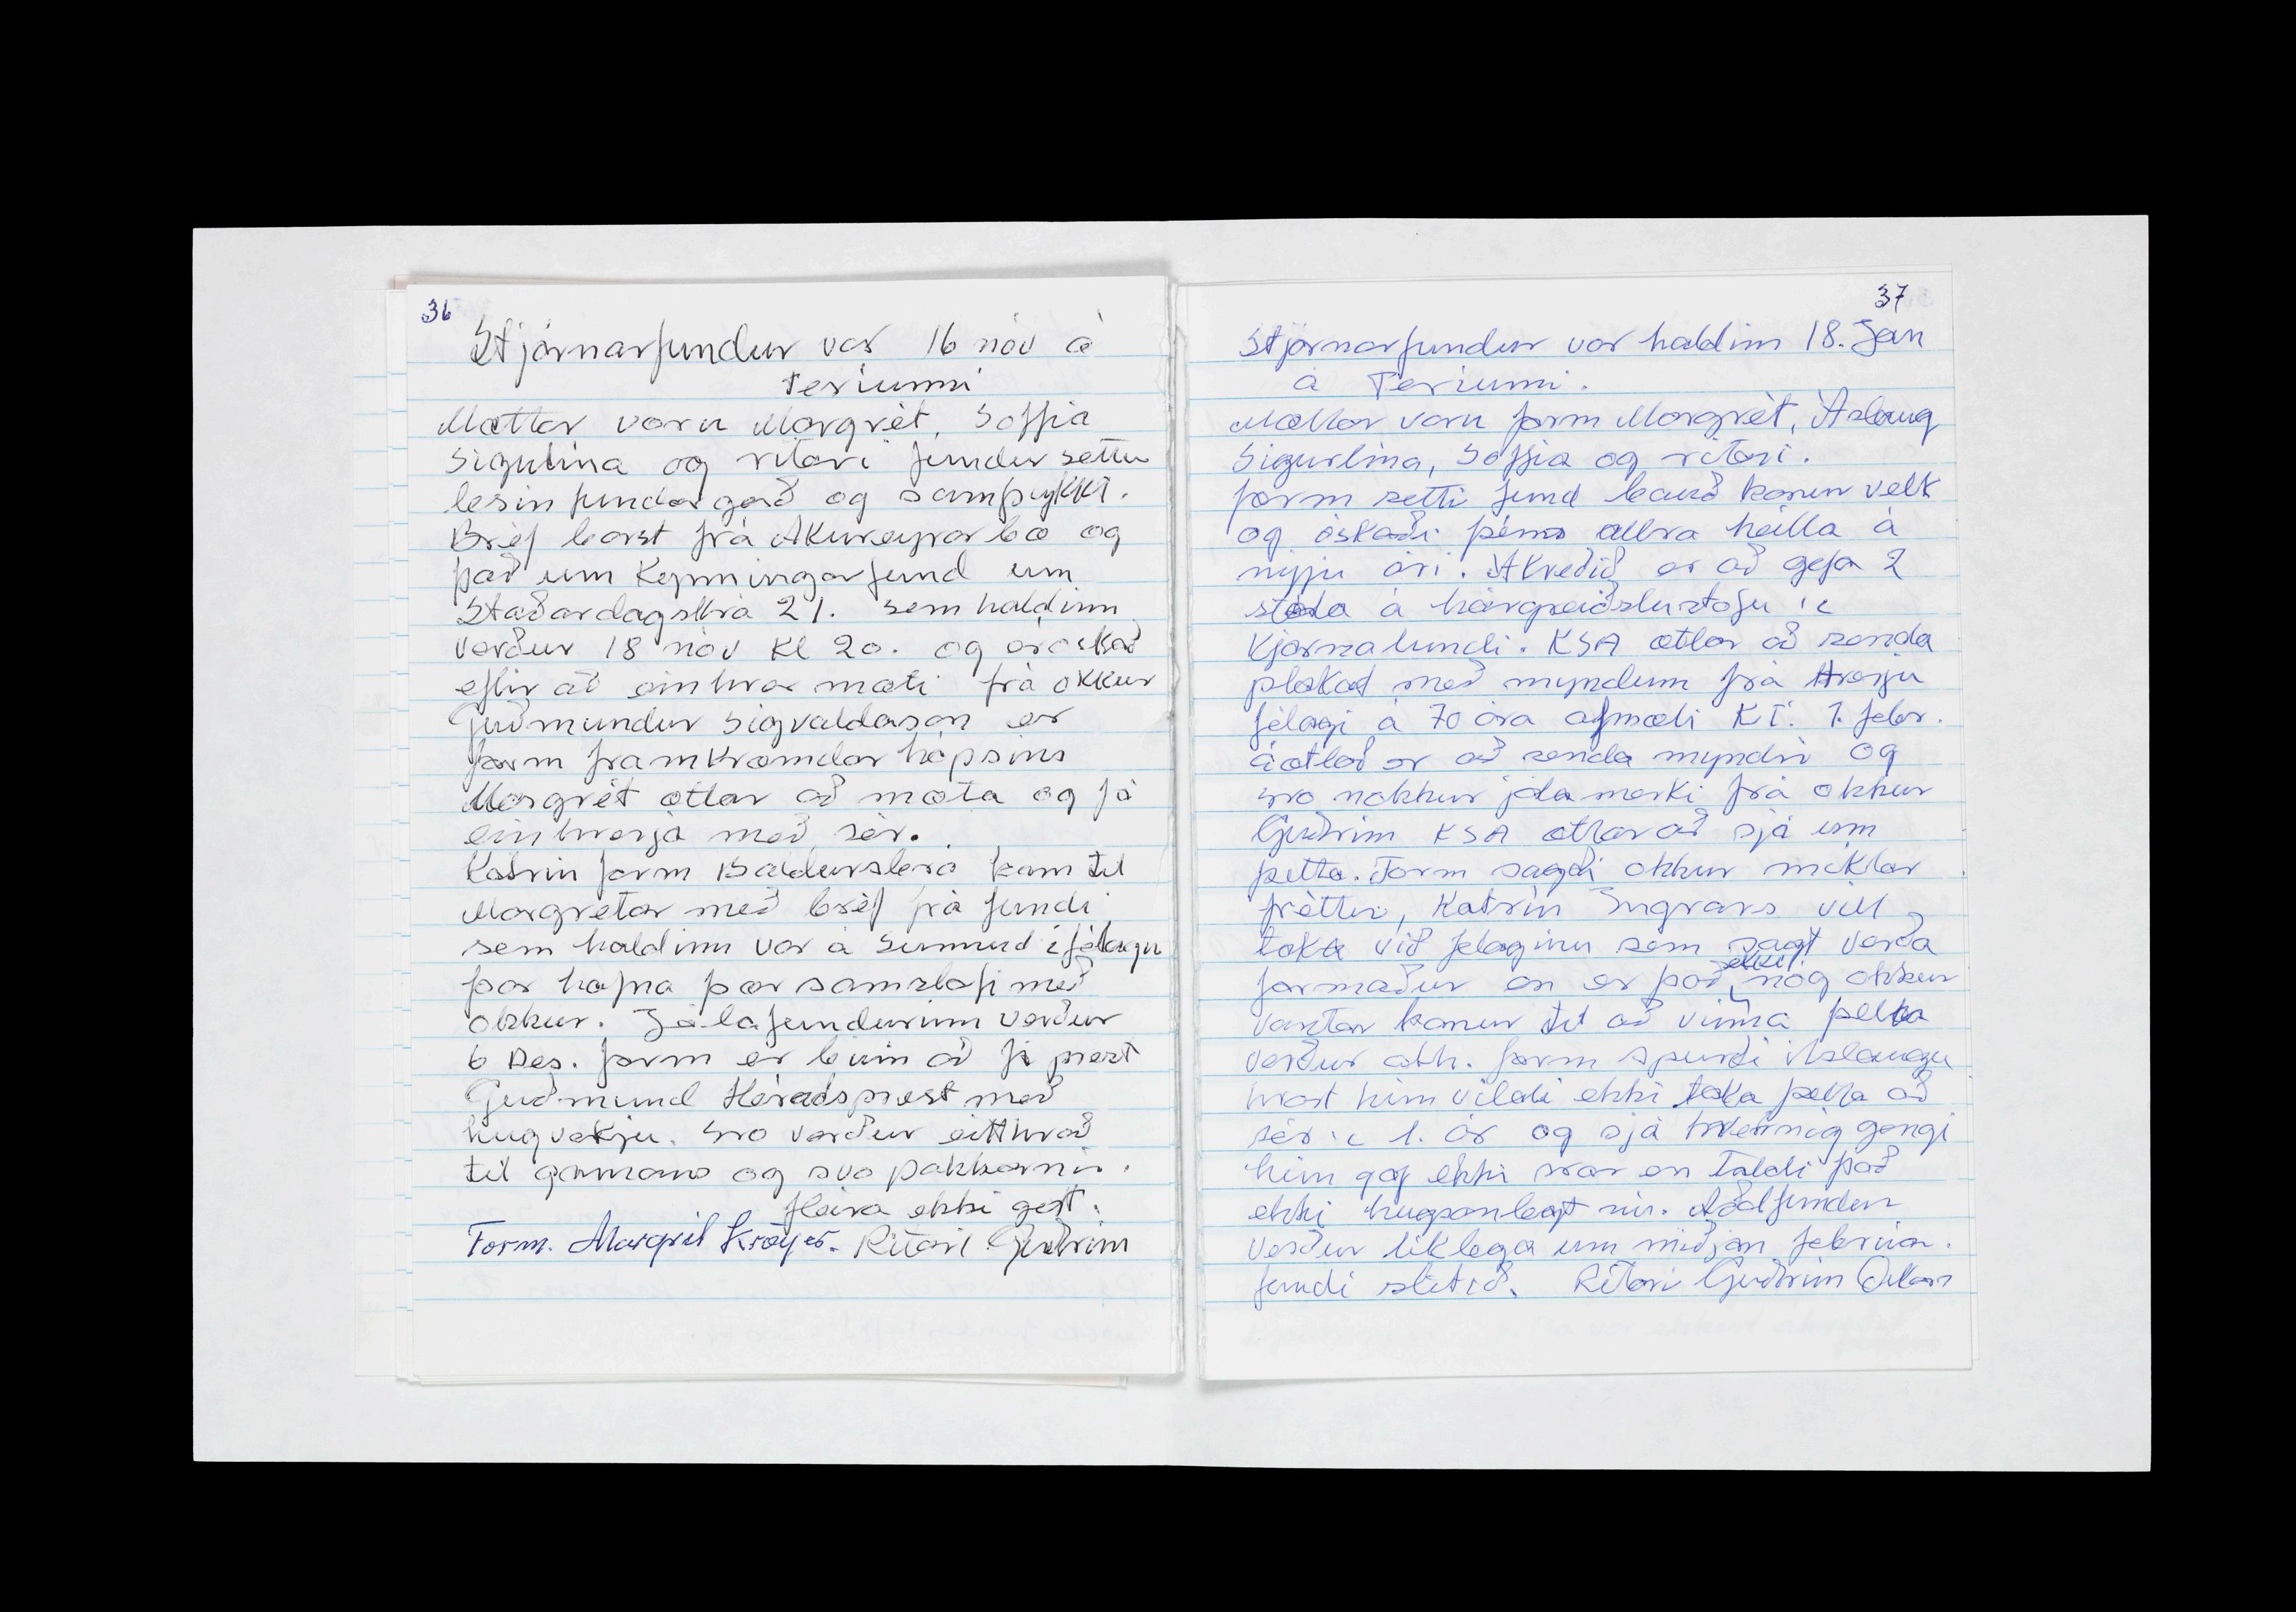 36
Stjórnarfundur var 16 nóv á
teriunni
Mættar voru Margrét, Soffía
Sigulína og ritari fundur settur
lesin fundargerð og samþykkt.
Bréf barst frá Akureyrarbæ og
það um Kynningarfund um
Staðardagskrá 21. sem haldinn
verður 18 nóv kl 20. og er óskað
eftir að einhver mæti frá okkur
Guðmundur Sigvaldason er
form framkvæmdar hópsins
Margrét ætlar að mæta og fá
einhverja með sér.
Katrín form Baldursbrá kom til
Margrétar með bréf frá fundi
sem haldinn var á Sunnud í félagu
þar hafna þær samstafi með
okkur. Jólafundurinn verður
6 Des. form er búin að fá prest
Guðmund Héraðsprest með
hugvekju. svo verður eitthvað
til gamans og svo pakkarnir.
fleira ekki gert.
Form. Margrét Kröyer. Ritari Guðrún
37
Stjórnarfundur var haldinn 18. Jan
á Teriunni.
Mættar voru form Margrét, Áslaug
Sigurlína, Soffía og ritari.
form setti fund bauð konur velk
og óskaði þeim allra heilla á
nýju ári. Akveðið er að gefa 2
stóla á hárgreiðslustofu í
Kjarnalundi. KSA ætlar að senda
plakat með myndum frá Hverju
félagi á 70 ára afmæli KÍ. 1. febr.
áætlað er að senda myndir og
svo nokkur jóla merki frá okkur
Guðrún KSA ætlar að sjá um
þetta. Form sagði okkur miklar
fréttir, Katrín Ingvars vill
taka við félaginu sem sagt verða
formaður en er það ekki nóg okkur
vantar konur til að vinna þetta
verður ath. form spurði Áslaugu
hvort hún vildi ekki taka þetta að
sér í 1. ár og sjá hvernig gengi
hún gaf ekki svar en taldi það
ekki hugsanlegt nú. Aðalfundur
verður líklega um miðjan febrúar.
fundi slitið. Ritari Guðrún